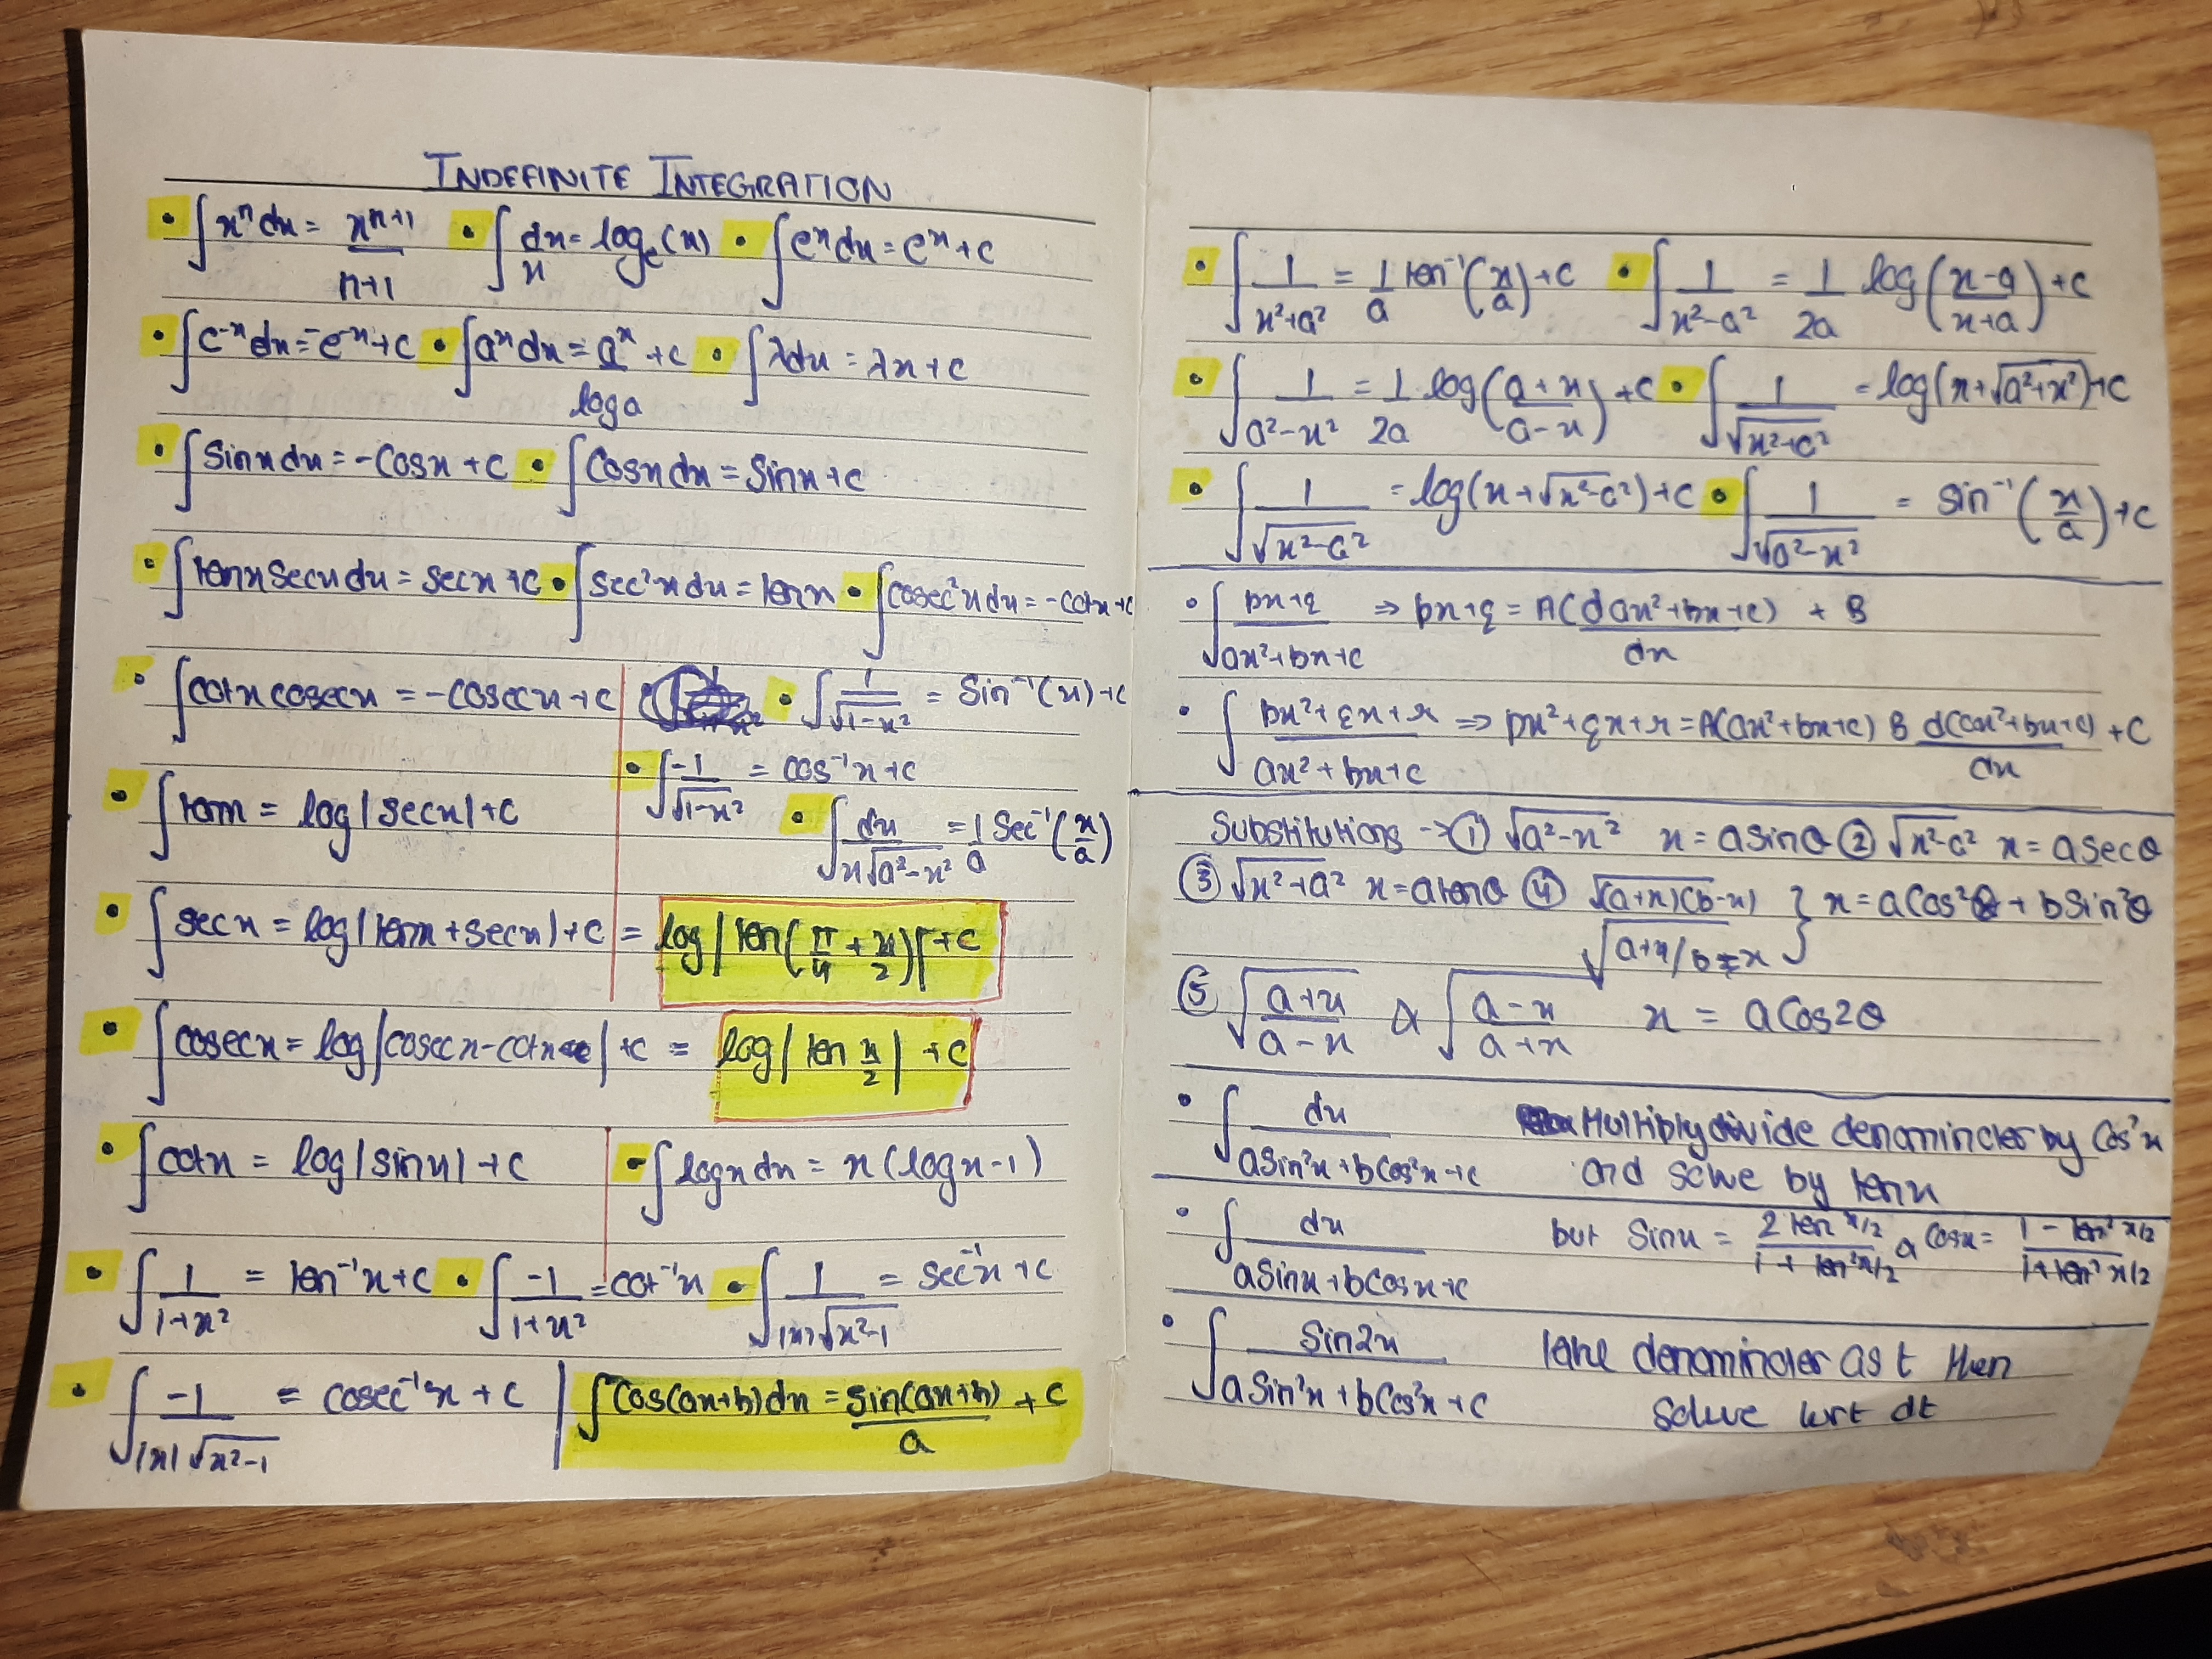 INDEFINITE INTEGRATION
• ∫xⁿdx = xⁿ⁺¹/n+1 • ∫dx/x = logₑ(x) • ∫eˣdx = eˣ+c
• ∫e⁻ˣdx = e⁻ˣ+c • ∫aˣdx = aˣ/loga +c • ∫λdx = λx+c
• ∫Sinxdx = -Cosx+c • ∫Cosxdx = Sinx+c
• ∫tanxsecxdx = secx+c • ∫sec²xdx = tanx • ∫cosec²xdx = -cotx+c
• ∫cotxcosecx = -cosecx+c • ∫1/√1-x² = Sin⁻¹(x)+c
• ∫-1/√1-x² = cos⁻¹x+c
• ∫tanx = log|secx|+c • ∫dx/x√a²-x² = 1/a Sec⁻¹(x/a)
• ∫secx = log|tanx+secx|+c = log|tan(π/4+x/2)|+c
• ∫cosecx = log|cosecx-cotx|+c = log|tan x/2|+c
• ∫cotx = log|sinx|+c • ∫logxdx = x(logx-1)
• ∫1/1+x² = tan⁻¹x+c • ∫-1/1+x² = cot⁻¹x • ∫1/|x|√x²-1 = sec⁻¹x+c
• ∫-1/|x|√x²-1 = cosec⁻¹x+c | ∫Cos(ax+b)dx = sin(ax+b)/a +c
• ∫1/x²+a² = 1/a tan⁻¹(x/a)+c • ∫1/x²-a² = 1/2a log(x-a/x+a)+c
• ∫1/a²-x² = 1/2a log(a+x/a-x)+c • ∫1/√x²+a² = log(x+√a²+x²)+c
• ∫1/√x²-a² = log(x+√x²-a²)+c • ∫1/√a²-x² = sin⁻¹(x/a)+c
• ∫px+q/ax²+bx+c ⇒ px+q = A(dax²+bx+c)/dx + B
• ∫px²+qx+r/ax²+bx+c ⇒ px²+qx+r = A(ax²+bx+c) B d(ax²+bx+c)/dx +C
Substitutions → ① √a²-x² x = asinθ ② √x²-a² x = asecθ
③ √x²+a² x=atanθ ④ √(a+x)(b-x) } x = aCos²θ + bSin²θ
√a+x/b-x
⑤ √a+x/a-x & √a-x/a+x x = aCos2θ
• ∫dx/aSin²x+bCos²x+c Multiply divide denominater by Cos²x
and solve by tanx
• ∫dx/aSinx+bCosx+c put Sinx = 2tan x/2/1+tan²x/2 & Cosx = 1-tan²x/2/1+tan²x/2
• ∫Sin2x/aSin²x+bCos²x+c take denominater as t then
solve wrt dt